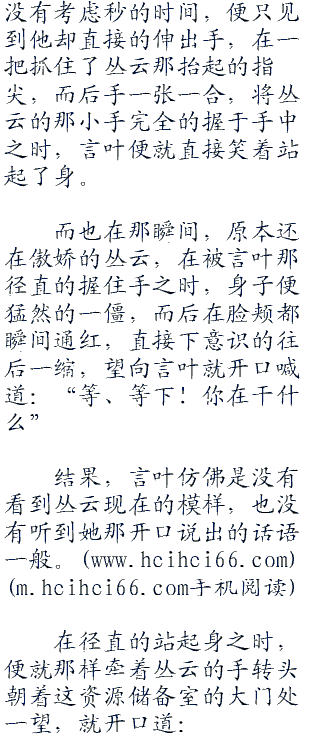 没有考虑秒的时间，便只见
到他却直接的伸出手，在一
把抓住了丛云那抬起的指
尖，而后手一张一合，将丛
云的那小手完全的握于手中
之时，言叶便就直接笑着站
起了身。
而也在那瞬间，原本还
在傲娇的丛云，在被言叶那
径直的握住手之时，身子便
猛然的一僵，而后在脸颊都
瞬间通红，直接下意识的往
后一缩，望向言叶就开口喊
道：“等、等下！你在干什
么”
结果，言叶仿佛是没有
看到丛云现在的模样，也没
有听到她那开口说出的话语
一般。(www.hcihci66.com)
(m.hcihci66.com手机阅读)
在径直的站起身之时，
便就那样牵着丛云的手转头
朝着这资源储备室的大门处
一望，就开口道：